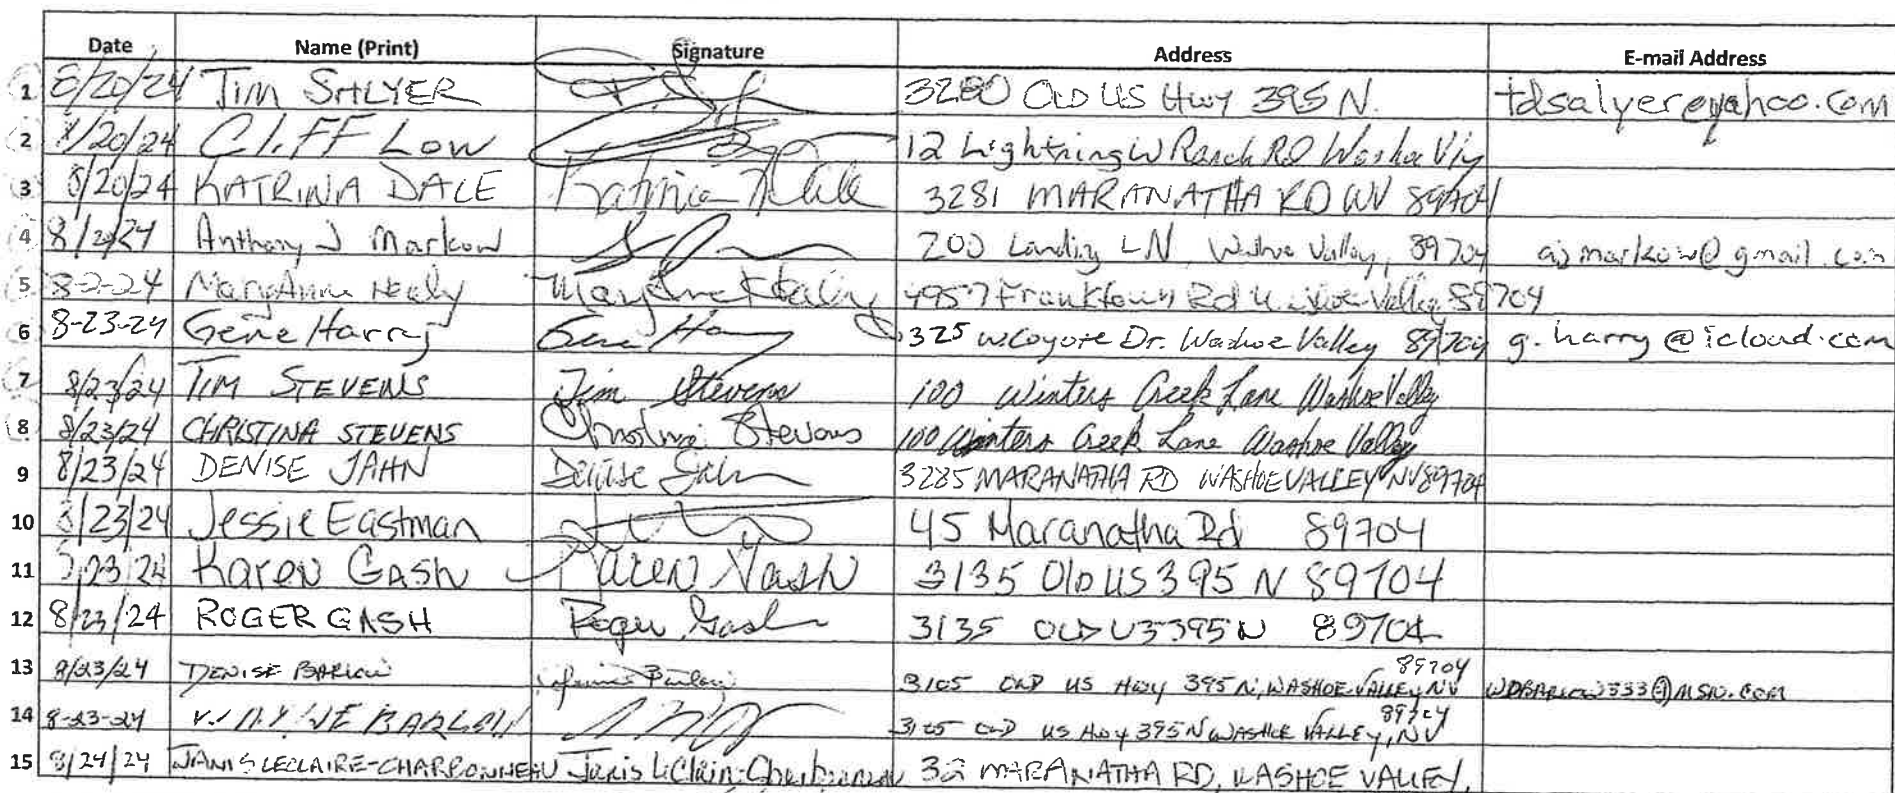 Date Name (Print) Signature Address E-mail Address
1 8/20/24 TIM SALYER 3280 OLD US Hwy 395 N. tdsalyer@yahoo.com
2 8/20/24 CLIFF LOW 12 Lightning W Ranch RD Washoe Vly
3 8/20/24 KATRINA DALE Katrina Dale 3281 MARANATHA RD WV 89704
4 8/20/24 Anthony J Markow 200 Landing LN, Washoe Valley, 89704 ajmarkow@gmail.com
5 8-2-24 MaryAnne Healy MaryAnne Healy 4957 Franktown Rd Washoe Valley 89704
6 8-23-24 Gene Harry Gene Harry 325 W Coyote Dr. Washoe Valley 89704 g.harry@icloud.com
7 8/23/24 TIM STEVENS Tim Stevens 100 Winters Creek Lane Washoe Valley
8 8/23/24 CHRISTINA STEVENS Christina Stevens 100 Winters Creek Lane Washoe Valley
9 8/23/24 DENISE JAHN Denise Jahn 3285 MARANATHA RD WASHOE VALLEY NV 89704
10 8/23/24 Jessie Eastman 45 Maranatha Rd 89704
11 8/23/24 Karen GASH Karen Gash 3135 Old US 395 N 89704
12 8/23/24 ROGER GASH Roger Gash 3135 OLD US 395 N 89704
13 8/23/24 DENISE BARLOW Barlow 3105 OLD US Hwy 395 N, WASHOE VALLEY, NV 89704 WDBARLOW333@MSN.COM
14 8-23-24 WAYNE BARLOW 3105 OLD US Hwy 395 N WASHOE VALLEY, NV 89704
15 8/24/24 JANIS LECLAIRE-CHARBONNEAU Janis LeClaire-Charbonneau 32 MARANATHA RD, WASHOE VALLEY,